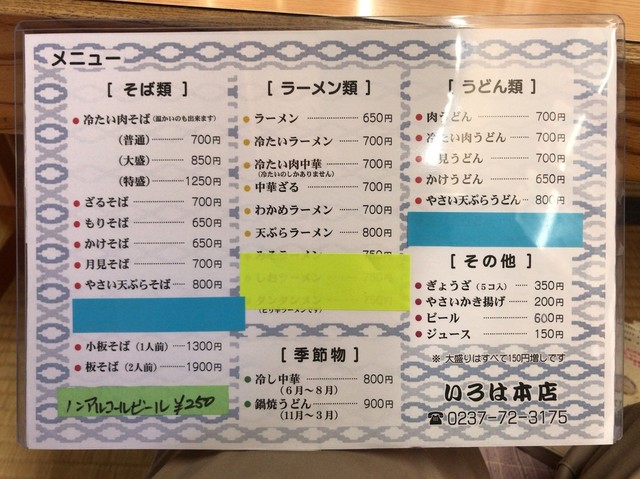 メニュー
[ そば類 ]
冷たい肉そば(温かいのも出来ます)
(普通) 700円
(大盛) 850円
(特盛) 1250円
ざるそば 700円
もりそば 650円
かけそば 650円
月見そば 700円
やさい天ぷらそば 800円
小板そば (1人前) 1300円
板そば (2人前) 1900円
ノンアルコールビール ¥250
[ ラーメン類 ]
ラーメン 650円
冷たいラーメン 700円
冷たい肉中華 700円
(冷たいのしかありません)
中華ざる 700円
わかめラーメン 700円
天ぷらラーメン 800円
750円
しおラーメン
タンタンメン 750円
(ピリ辛ラーメンです)
[ 季節物 ]
冷し中華 800円
(6月～8月)
鍋焼うどん 900円
(11月～3月)
[ うどん類 ]
肉うどん 700円
冷たい肉うどん 700円
月見うどん 700円
かけうどん 650円
やさい天ぷらうどん 800円
[ その他 ]
ぎょうざ (5コ入) 350円
やさいかき揚げ 200円
ビール 600円
ジュース 150円
※ 大盛りはすべて150円増しです
いろは本店
☎0237-72-3175